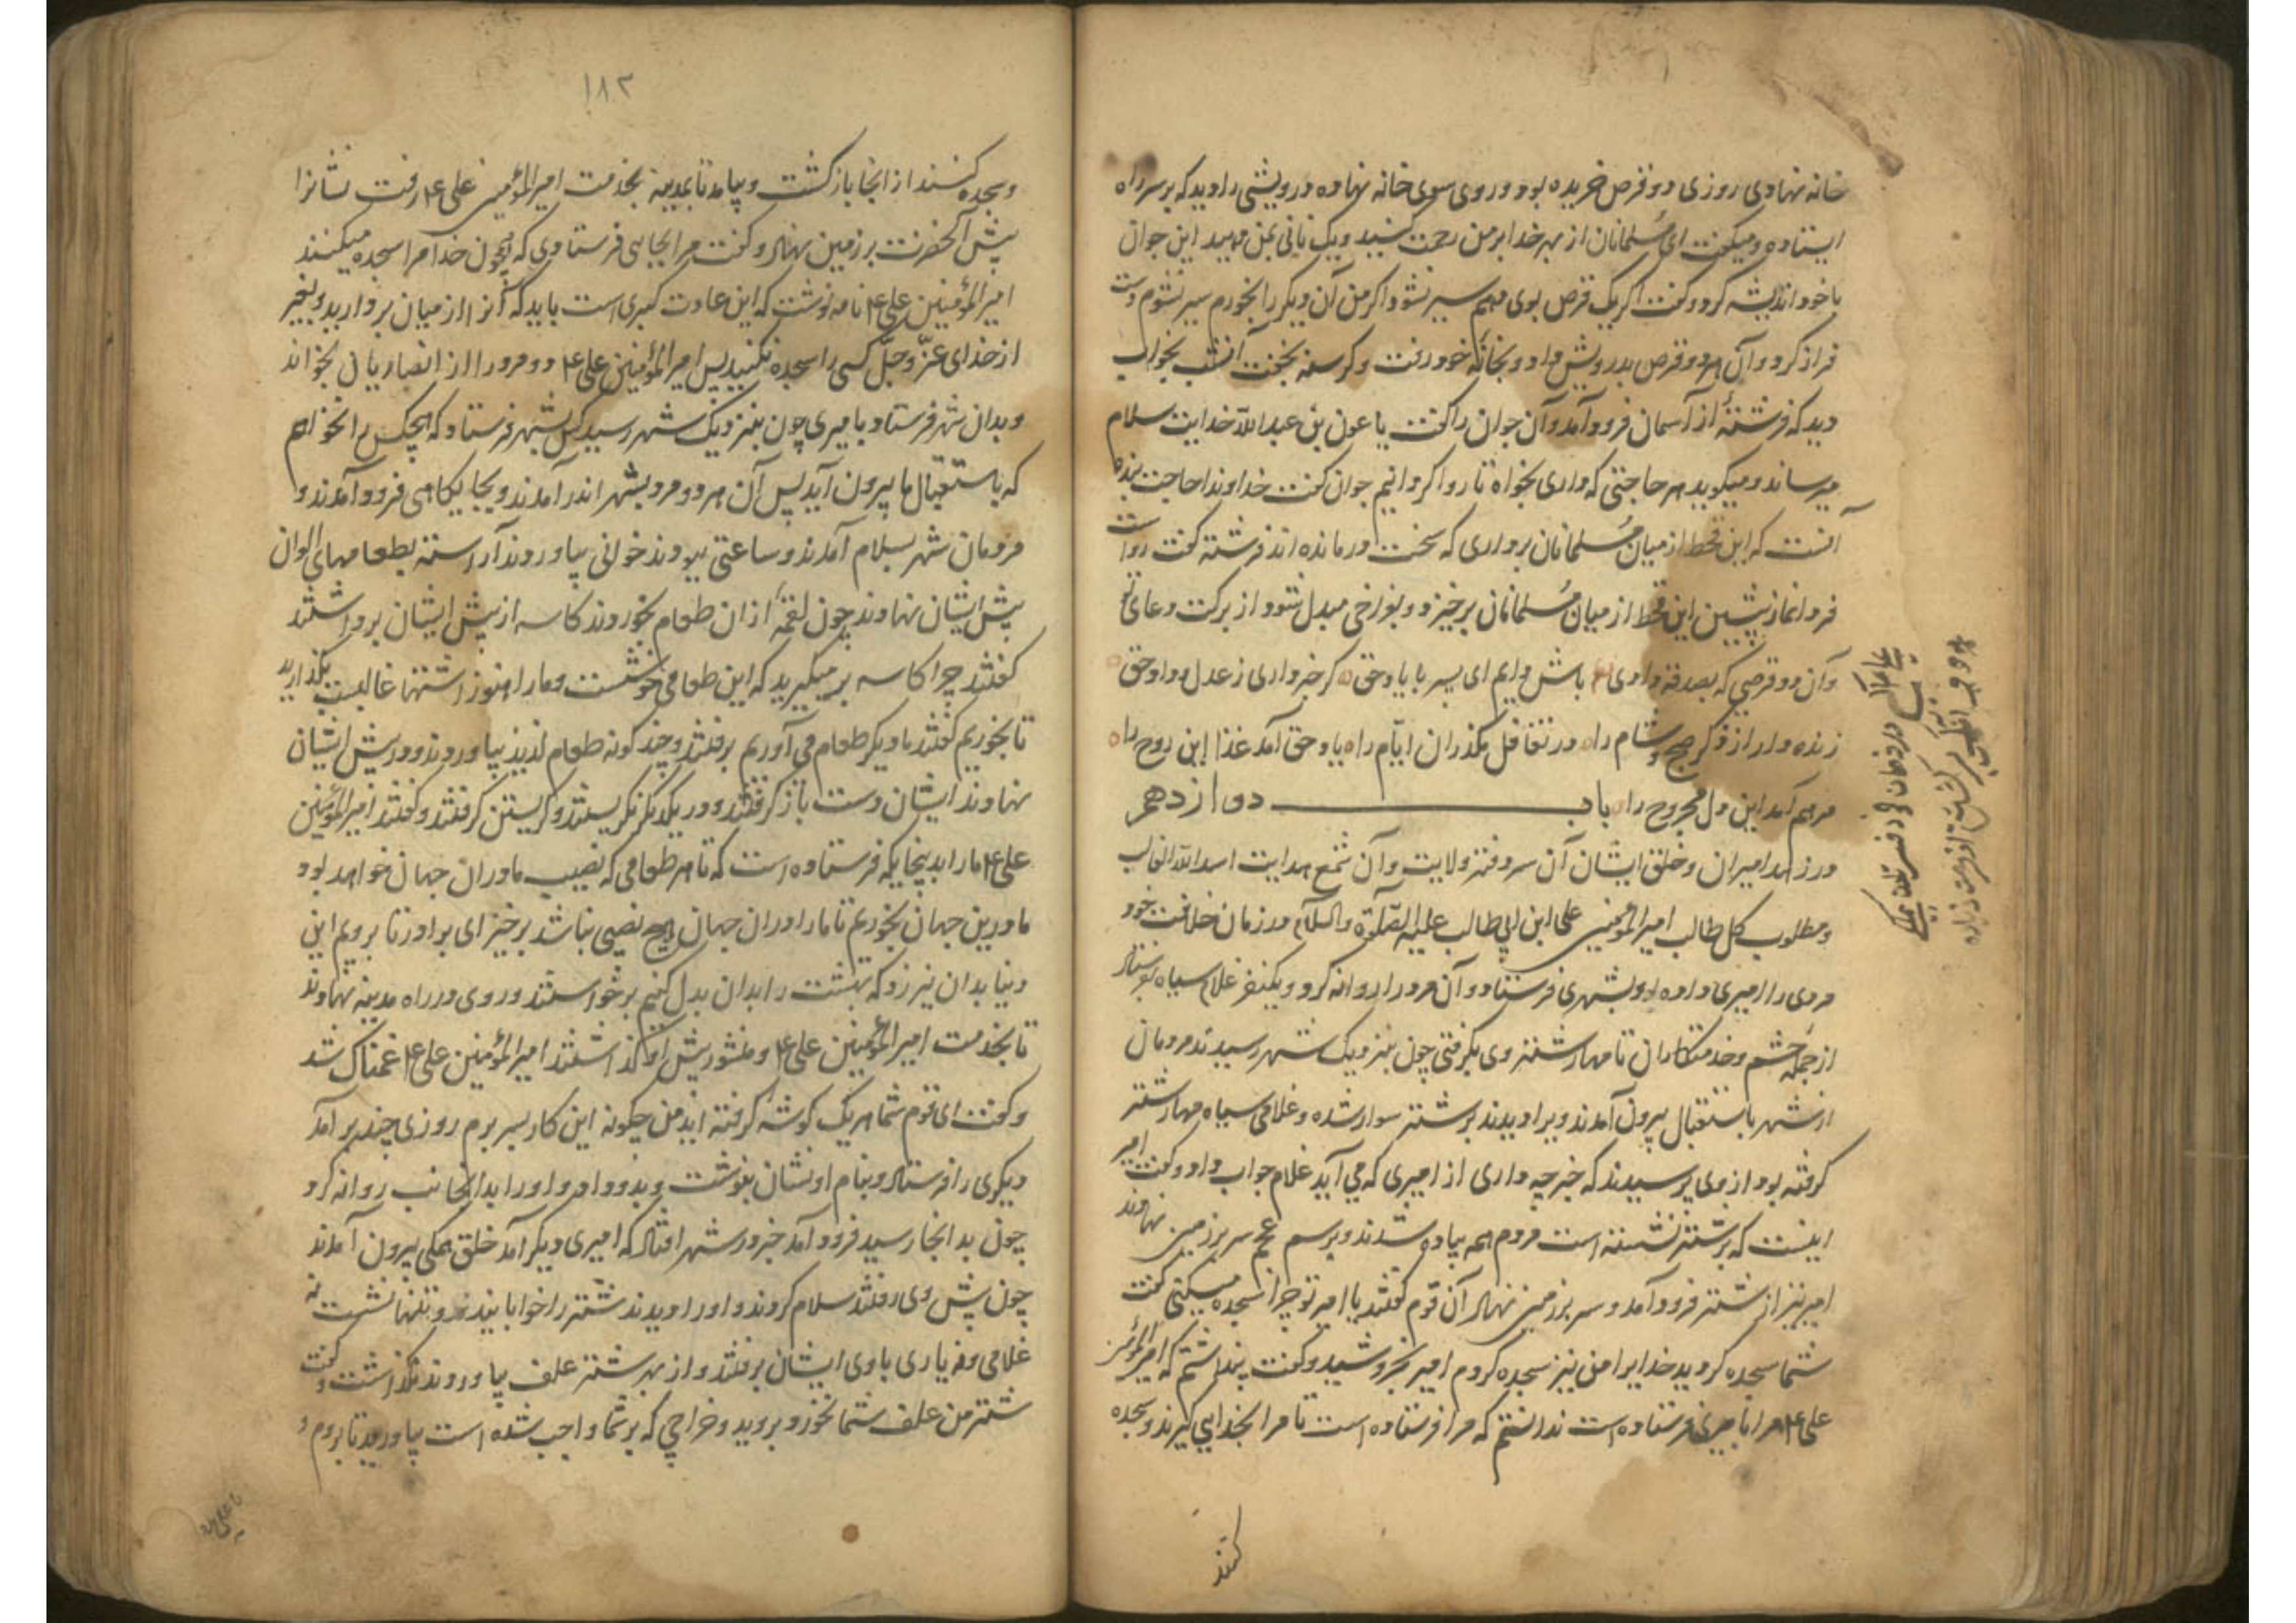 خانه نهادی روزی دو قرص خریده بود و روی سوی خانه نهاده درویشی را دید که بر سر راه
ایستاده و میکفت ای مسلمانان از بهر خدا بر من رحمت کنید و یک نانی بمن دهید این جوان
با خود اندیشه کرد و کفت اکر یک قرص بوی دهم سیر نشود اکر من آن دیکر را بخورم سیر نشوم دست
فراز کرد و آن هر دو قرص بدرویش داد و بخانهٔ خود رفت و کرسنه بخفت آنشب بخواب
دید که فرشتهٔ از آسمان فرود آمد و آن جوان را کفت یا عون بن عبدالله خدایت سلام
میرساند و میکوید هر حاجتی که داری بخواه تا روا کردانیم جوان کفت خداوندا حاجت بنده
آنست که این قحط از میان مسلمانان برداری که سخت درمانده اند فرشته کفت رواست
فردا نماز پیشین این قحط از میان مسلمانان برخیزد و بفراخی مبدل شود از برکت دعای تو
و آن دو قرصی که بصدقه دادی باش دایم ای پسر با یاد حق کر خبر داری ز عدل و داد حق
زنده دار از ذکر صبح و شام را در تغافل مکذران ایام را یاد حق آمد غذا این روح را
مرهم آمد این دل مجروح را باب دوازدهم
در زهد امیران و خلق ایشان آن سر دفتر ولایت و آن شمع هدایت اسد الله الغالب
و مطلوب کل طالب امیرالمؤمنین علی ابن ابی طالب علیه الصلوة والسلام در زمان خلافت خود
مردی را امیری داده بود بشهری فرستاد و آن مرد را روانه کرد و یکنفر غلام سیاه
از جمله حشم و خدمتکاران تا مهار شتر وی بکرفتی چون بنزدیک شهر رسیدند مردمان
از شهر باستقبال بیرون آمدند ویرا دیدند بر شتر سوار شده و غلامی سیاه مهار شتر
کرفته بود از وی پرسیدند که خبر چه داری از امیری که می آید غلام جواب داد و کفت امیر
اینست که بر شتر نشسته است مردم همه پیاده شدند و برسم عجم سر بر زمین نهادند
امیر نیز از شتر فرود آمد و سر بر زمین نهاد آن قوم کفتند یا امیر تو چرا سجده میکنی کفت
شما سجده کردید خدایرا من نیز سجده کردم امیر بخروشید و کفت پنداشتم که امیرالمؤمنین
علی ع مرا بامیری فرستاده است ندانستم که مرا فرستاده است تا مرا بخدایی کیرند و سجده
کنند
۱۸۲
و سجده کنند از انجا باز کشت و بیامد تا بمدینه بخدمت امیرالمؤمنین علی ع رفت نشانرا
پیش آنحضرت بر زمین نهاد و کفت مرا بجایی فرستادی که بچون خدا مرا سجده میکنند
امیرالمؤمنین علی ع نامه نوشت که این عادت کبری است باید که آنرا از میان بردارید و بغیر
از خدای عز و جل کسی را سجده نکنید پس امیرالمؤمنین علی ع دو مرد را از انصاریان بخواند
و بدان شهر فرستاد بامیری چون بنزدیک شهر رسید کس بشهر فرستاد که هیچکس را نخواهم
که باستقبال ما بیرون آید پس آن هر دو مرد بشهر اندر آمدند و بجایکاهی فرود آمدند و
مردمان شهر بسلام آمدند و ساعتی ببودند خوانی بیاوردند آراسته بطعامهای الوان
پیش ایشان نهادند چون لقمهٔ از ان طعام بخوردند کاسه از پیش ایشان برداشتند
کفتند چرا کاسه بر میکیرید که این طعامی خوشست و ما را هنوز اشتها غالبست بکذارید
تا بخوریم کفتند ما دیکر طعام می آوریم برفتند و چند کونه طعام لذیذ بیاوردند و در پیش ایشان
نهادند ایشان دست باز کرفتند و در یکدیکر نکریستند و کریستن کرفتند و کفتند امیرالمؤمنین
علی ع ما را بدینجایکه فرستاده است که تا هر طعامی که نصیب ما در ان جهان خواهد بود
ما درین جهان بخوریم تا ما را در ان جهان هیچ نصیبی نباشد برخیز ای برادر تا برویم این
دنیا بدان نیرزد که بهشت را بدان بدل کنیم برخواستند و روی در راه مدینه نهادند
تا بخدمت امیرالمؤمنین علی ع و منشور پیش او کذاشتند امیرالمؤمنین علی ع غمناک شد
و کفت ای قوم شما هر یک کوشه کرفته اید من چکونه این کار بسر برم روزی چند بر آمد
دیکری را فرستاد و بنام او نشان بنوشت و بدو داد و او را بدانجانب روانه کرد
چون بدانجا رسید فرود آمد خبر در شهر افتاد که امیری دیکر آمد خلق همکی بیرون آمدند
چون پیش وی رفتند سلام کردند و او را دیدند شتر را خوابانیده و تنها نشسته نه
غلامی و نه یاری با وی ایشان برفتند و از بهر شتر علف بیاوردند نکذاشت و کفت
شتر من علف شما نخورد بروید و خراجی که بر شما واجب شده است بیاورید تا بروم و